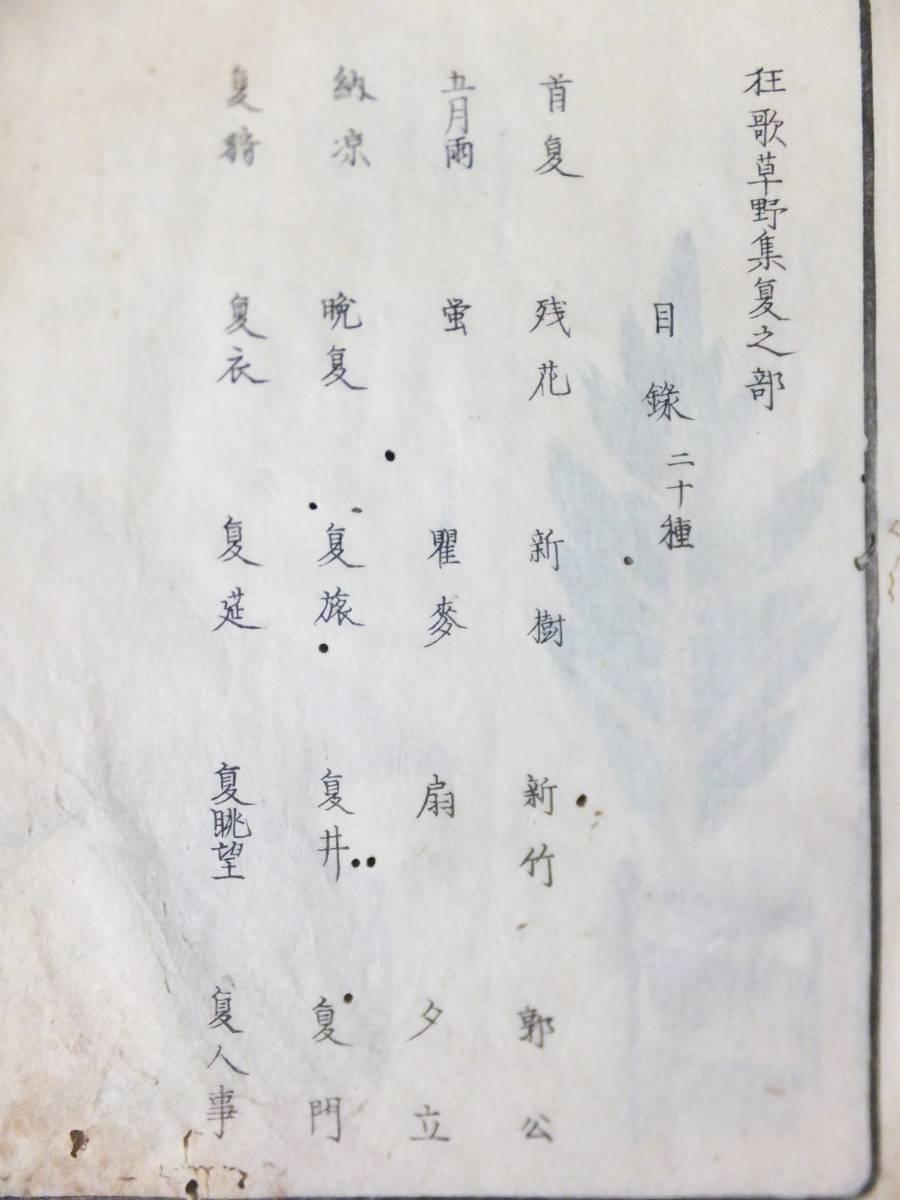 狂歌草野集夏之部
目録 二十種
首夏 残花 新樹 新竹 郭公
五月雨 蛍 瞿麥 扇 夕立
納涼 晩夏 夏旅 夏井 夏門
夏 夏衣 夏莚 夏眺望 夏人事